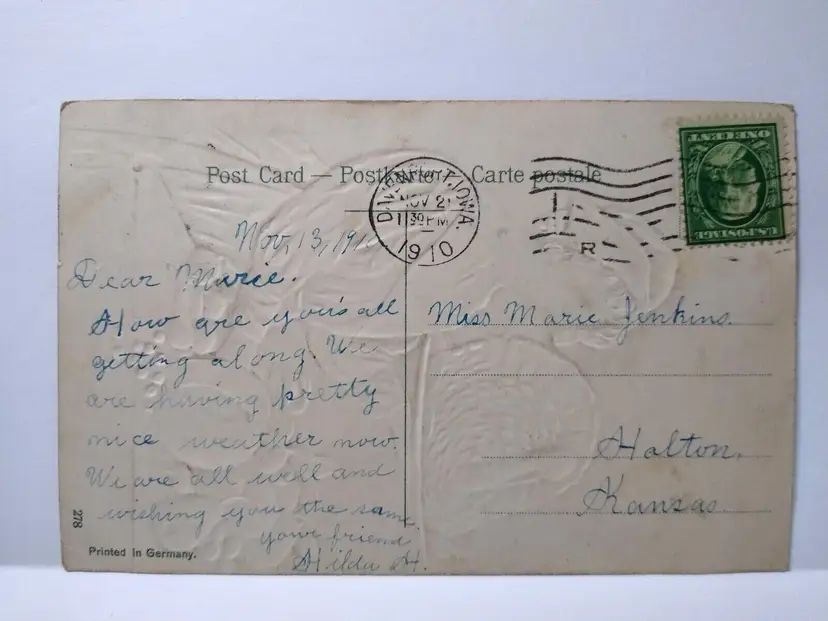 Post Card — Postkarte — Carte postale
DAVENPORT, IOWA.
NOV 21
1 30 PM
1910
R
U.S. POSTAGE
ONE CENT
Nov, 13, 1910
Dear Marie.
How are you's all
getting along. We
are having pretty
nice weather now.
We are all well and
wishing you the same.
your friend
Hilda H.
Miss Marie Jenkins.
Holton,
Kansas.
278
Printed in Germany.